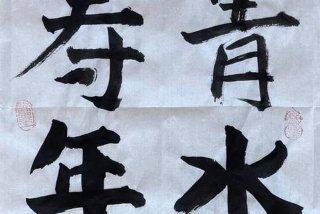 青水
寿年